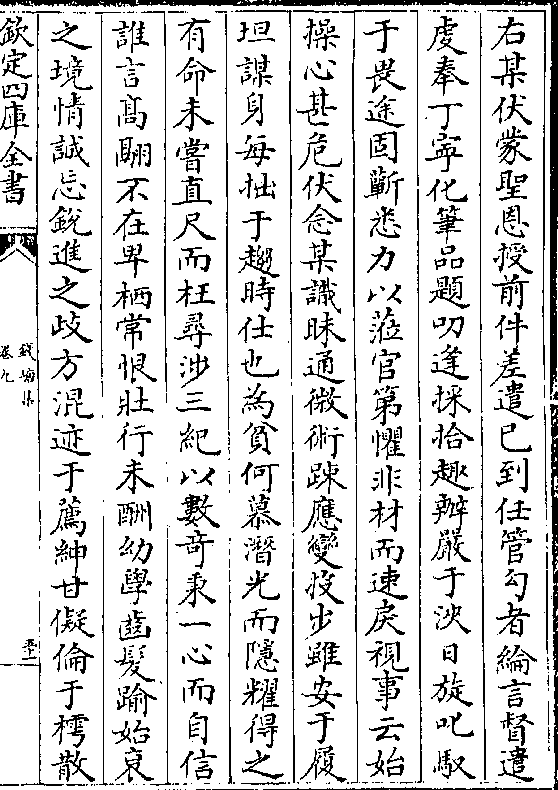 右某伏蒙聖恩授前件差遣已到任管勾者綸言督遣
虔奉丁寧化筆品題叨逢採拾趣辦嚴于浹日旋叱馭
于畏途固蘄悉力以蒞官第懼非材而速戾視事云始
操心甚危伏念某識昧通微術踈應變投步雖安于履
坦謀身每拙于趨時仕也為貧何慕潛光而隱耀得之
有命未嘗直尺而枉尋涉三紀以數竒秉一心而自信
誰言高翮不在卑栖常恨壯行未酬幼學齒髮踰始衰
之境情誠忘銳進之歧方混迹于薦紳甘儗倫于樗散
欽定四庫全書
錢塘集
卷九